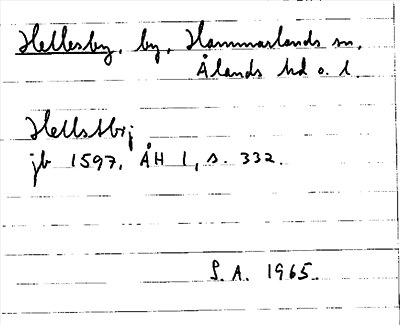 Hellesby, by, Hammarlands sn,
Ålands hd o. l.
Hellstbÿ
jb 1597, ÅH 1, s. 332.
S. A. 1965.